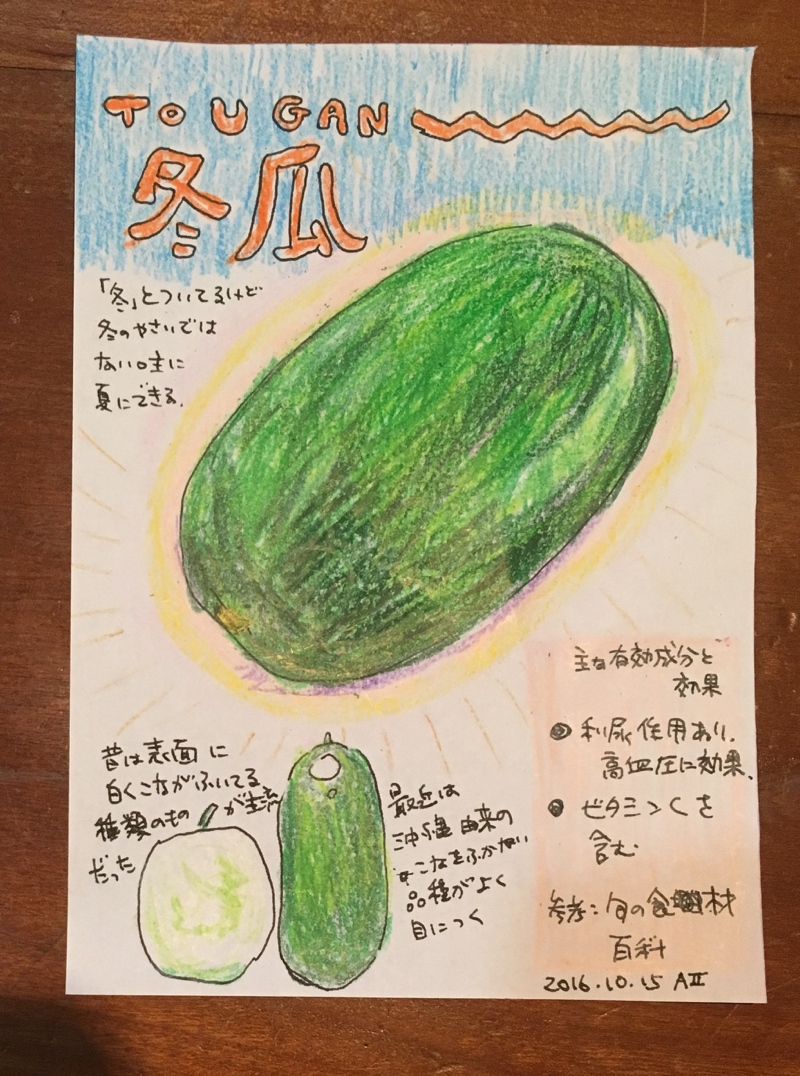 TOUGAN
冬瓜
「冬」とついてるけど
冬のやさいでは
ない。主に
夏にできる。
昔は表面に
白くこながふいてる
種類のものが主流
だった
最近は
沖縄由来の
こなをふかない
品種がよく
目につく
主な有効成分と
効果
利尿作用あり、
高血圧に効果、
ビタミンCを
含む
参考:旬の食材
百科
2016.10.15 AII